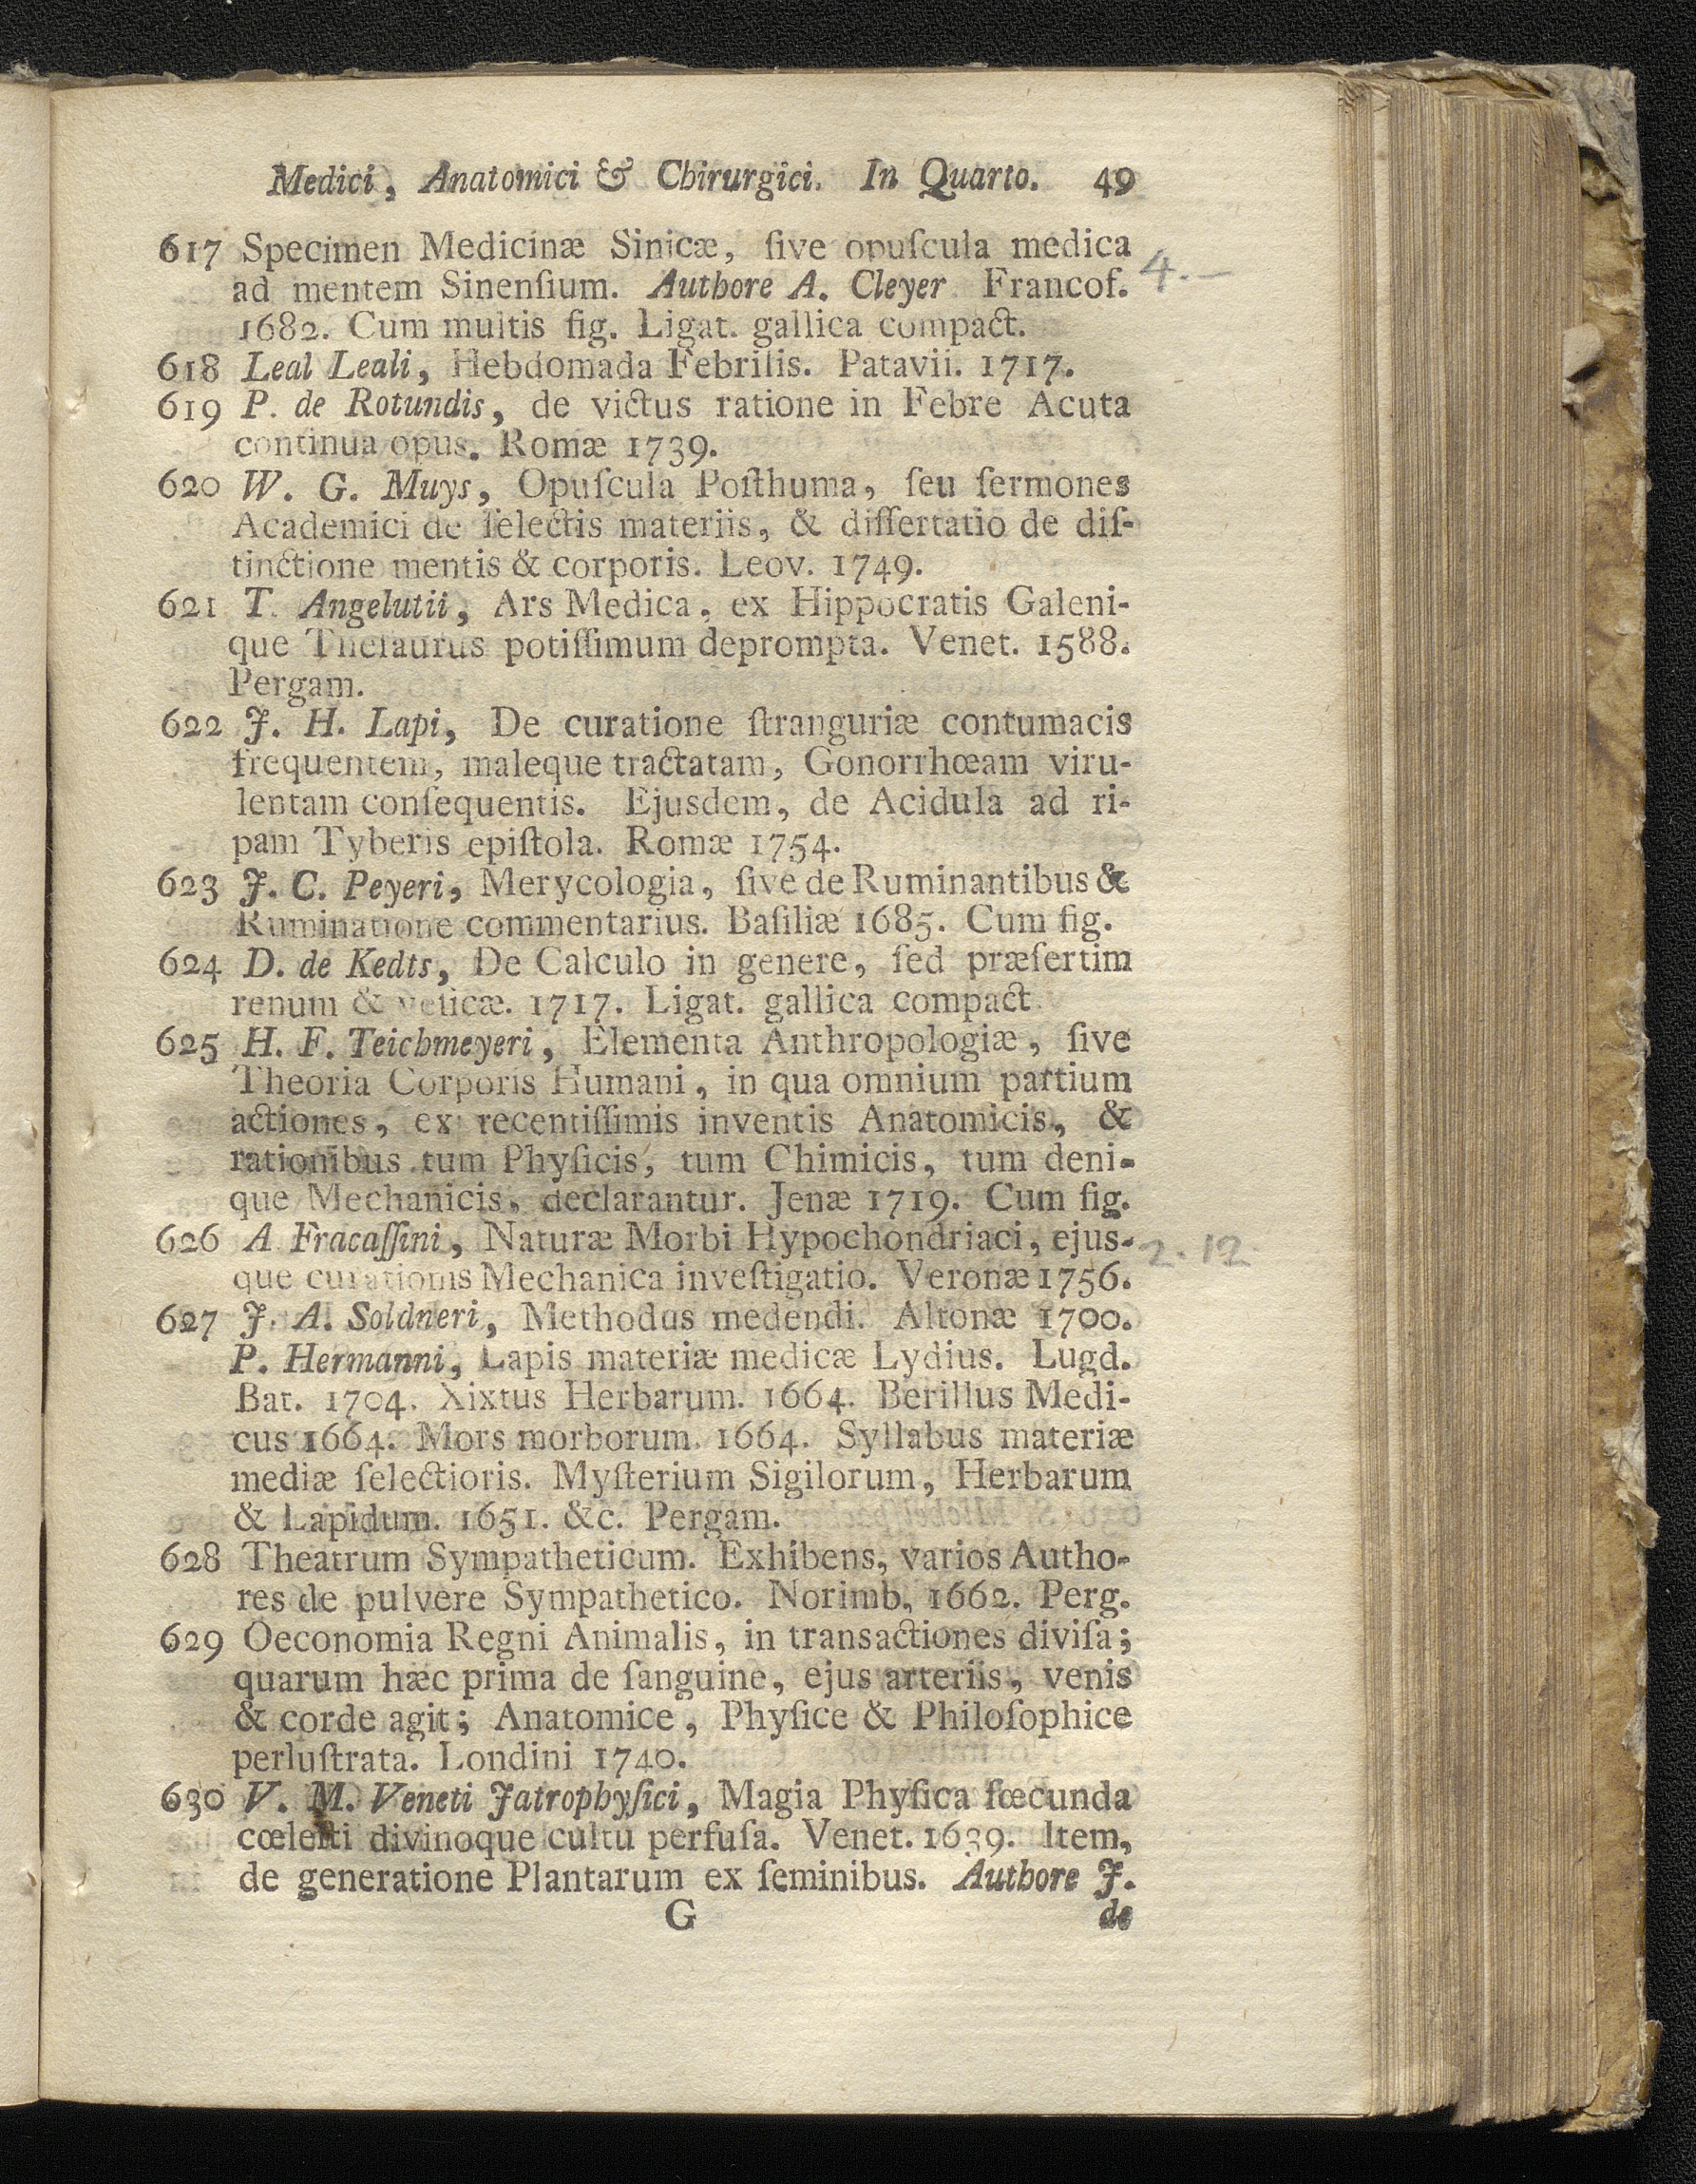 Medici, Anatomici & Chirurgici. In Quarto. 49
617 Specimen Medicinæ Sinicæ, ſive opuſcula medica
ad mentem Sinenſium. Authore A. Cleyer Francof.
4.—
1682. Cum multis fig. Ligat. gallica compact.
618 Leal Leali, Hebdomada Febrilis. Patavii. 1717.
619 P. de Rotundis, de victus ratione in Febre Acuta
continua opus. Romæ 1739.
620 W. G. Muys, Opuſcula Poſthuma, ſeu ſermones
Academici de ſelectis materiis, & diſſertatio de diſ-
tinctione mentis & corporis. Leov. 1749.
621 T. Angelutii, Ars Medica, ex Hippocratis Galeni-
que Theſaurus potiſſimum deprompta. Venet. 1588.
Pergam.
622 J. H. Lapi, De curatione ſtranguriæ contumacis
frequentem, maleque tractatam, Gonorrhœam viru-
lentam conſequentis. Ejusdem, de Acidula ad ri-
pam Tyberis epiſtola. Romæ 1754.
623 J. C. Peyeri, Merycologia, ſive de Ruminantibus &
Ruminatione commentarius. Baſiliæ 1685. Cum fig.
624 D. de Kedts, De Calculo in genere, ſed præſertim
renum & veſicæ. 1717. Ligat. gallica compact
625 H. F. Teichmeyeri, Elementa Anthropologiæ, ſive
Theoria Corporis Humani, in qua omnium partium
actiones, ex recentiſſimis inventis Anatomicis, &
rationibus tum Phyſicis, tum Chimicis, tum deni-
que Mechanicis, declarantur. Jenæ 1719. Cum fig.
626 A Fracaſſini, Naturæ Morbi Hypochondriaci, ejus-
2.12
que curationis Mechanica inveſtigatio. Veronæ 1756.
627 J. A. Soldneri, Methodus medendi. Altonæ 1700.
P. Hermanni, Lapis materiæ medicæ Lydius. Lugd.
Bat. 1704. Xixtus Herbarum. 1664. Berillus Medi-
cus 1664. Mors morborum. 1664. Syllabus materiæ
mediæ ſelectioris. Myſterium Sigilorum, Herbarum
& Lapidum. 1651. &c. Pergam.
628 Theatrum Sympatheticum. Exhibens, varios Autho-
res de pulvere Sympathetico. Norimb, 1662. Perg.
629 Oeconomia Regni Animalis, in transactiones diviſa;
quarum hæc prima de ſanguine, ejus arteriis, venis
& corde agit; Anatomice, Phyſice & Philoſophice
perluſtrata. Londini 1740.
630 V. M. Veneti Jatrophyſici, Magia Phyſica fœcunda
cœleſti divinoque cultu perfuſa. Venet. 1639. Item,
de generatione Plantarum ex ſeminibus. Authore J.
G de